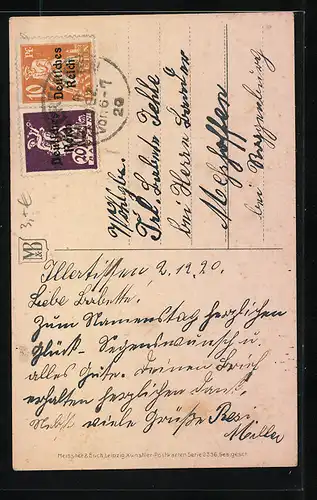 10 PF
Deutsches
Reich
20
Deutsches
Reich
VOR. 6-7
20
Wohlgb.
Frl. Babette
bei Herrn
bei
3,-€
MB
Illertissen 2.12.20.
Liebe Babette!
Zum Namenstag herzlichen
Glück- Segenswunsch u.
alles Gute. Deinen Brief
erhalten herzlichen Dank.
Nebst viele Grüße Resi
Miller
Meissner & Buch, Leipzig, Künstler-Postkarten Serie Ges. gesch.